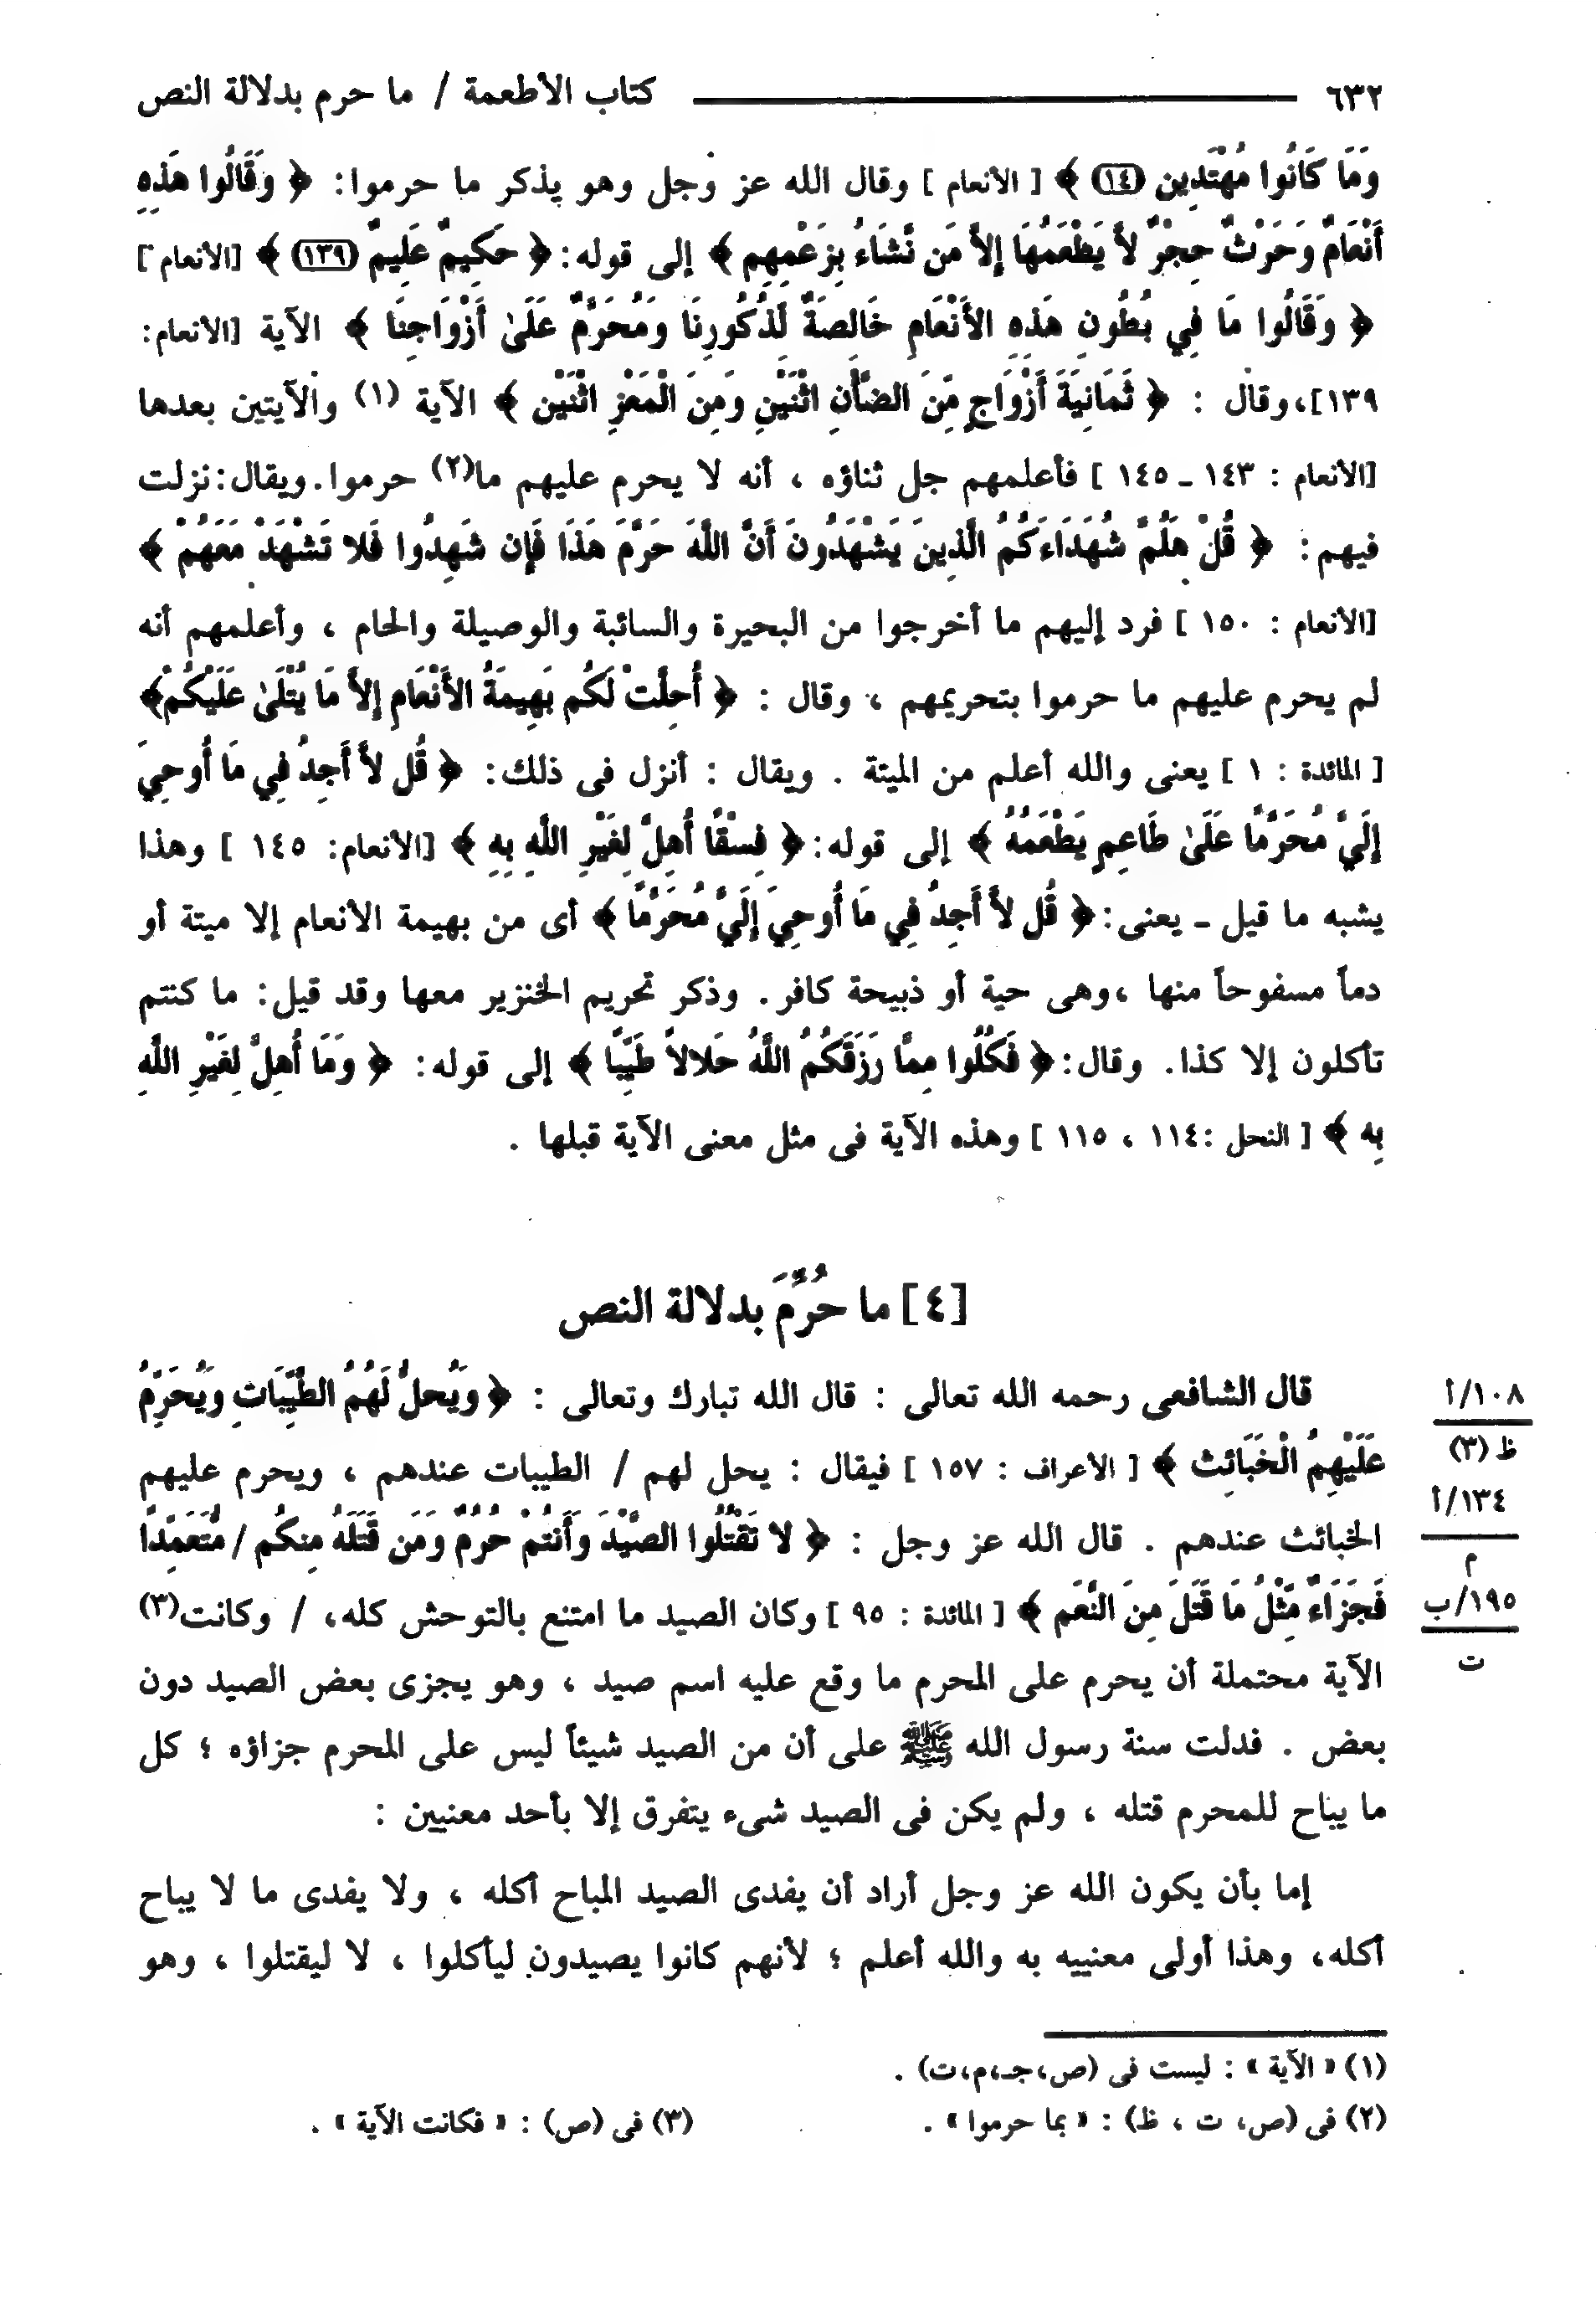 ٦٣٢ كتاب الأطعمة / ما حرم بدلالة النص
وَمَا كَانُوا مُهْتَدِين (١٤) ﴾ [ الأنعام ] وقال الله عز وجل وهو يذكر ما حرموا: ﴿ وَقَالُوا هَذِهِ
أَنْعَامٌ وَحَرْثٌ حِجْرٌ لاَّ يَطْعَمُهَا إِلاَّ مَن نَّشَاءُ بِزَعْمِهِم ﴾ إلى قوله: ﴿ حَكِيمٌ عَلِيمٌ (١٣٩) ﴾ [الأنعام]
﴿ وَقَالُوا مَا فِي بُطُونِ هَذِهِ الأَنْعَامِ خَالِصَةٌ لِّذُكُورِنَا وَمُحَرَّمٌ عَلَىٰ أَزْوَاجِنَا ﴾ الآية [الأنعام:
١٣٩]، وقال : ﴿ ثَمَانِيَةَ أَزْوَاجٍ مِّنَ الضَّأْنِ اثْنَيْنِ وَمِنَ الْمَعْزِ اثْنَيْن ﴾ الآية (١) والآيتين بعدها
[الأنعام : ١٤٣ ـ ١٤٥ ] فأعلمهم جل ثناؤه ، أنه لا يحرم عليهم ما(٢) حرموا. ويقال: نزلت
فيهم: ﴿ قُلْ هَلُمَّ شُهَدَاءَكُمُ الَّذِينَ يَشْهَدُونَ أَنَّ اللَّهَ حَرَّمَ هَذَا فَإِن شَهِدُوا فَلا تَشْهَدْ مَعَهُمْ ﴾
[الأنعام : ١٥٠ ] فرد إليهم ما أخرجوا من البحيرة والسائبة والوصيلة والحام ، وأعلمهم أنه
لم يحرم عليهم ما حرموا بتحريمهم ، وقال : ﴿ أُحِلَّتْ لَكُم بَهِيمَةُ الأَنْعَامِ إِلاَّ مَا يُتْلَىٰ عَلَيْكُمْ﴾
[ المائدة : ١ ] يعنى والله أعلم من الميتة . ويقال : أنزل فى ذلك: ﴿ قُل لاَّ أَجِدُ فِي مَا أُوحِيَ
إِلَيَّ مُحَرَّمًا عَلَىٰ طَاعِمٍ يَطْعَمُهُ ﴾ إلى قوله: ﴿ فِسْقًا أُهِلَّ لِغَيْرِ اللَّهِ بِهِ ﴾ [الأنعام: ١٤٥ ] وهذا
يشبه ما قيل ـ يعنى: ﴿ قُل لاَّ أَجِدُ فِي مَا أُوحِيَ إِلَيَّ مُحَرَّمًا ﴾ أى من بهيمة الأنعام إلا ميتة أو
دماً مسفوحاً منها ،وهى حية أو ذبيحة كافر. وذكر تحريم الخنزير معها وقد قيل: ما كنتم
تأكلون إلا كذا. وقال: ﴿ فَكُلُوا مِمَّا رَزَقَكُمُ اللَّهُ حَلالاً طَيِّبًا ﴾ إلى قوله: ﴿ وَمَا أُهِلَّ لِغَيْرِ اللَّهِ
بِه ﴾ [ النحل :١١٤ ، ١١٥ ] وهذه الآية فى مثل معنى الآية قبلها .
[٤] ما حُرِّمَ بدلالة النص
قال الشافعى رحمه الله تعالى : قال الله تبارك وتعالى : ﴿ وَيُحِلُّ لَهُمُ الطَّيِّبَاتِ وَيُحَرِّمُ
١٠٨/أ
عَلَيْهِمُ الْخَبَائِث ﴾ [ الأعراف : ١٥٧ ] فيقال : يحل لهم / الطيبات عندهم ، ويحرم عليهم
ظ (٣)
١٣٤/أ
الخبائث عندهم . قال الله عز وجل : ﴿ لا تَقْتُلُوا الصَّيْدَ وَأَنتُمْ حُرُمٌ وَمَن قَتَلَهُ مِنكُم / مُّتَعَمِّدًا
م
فَجَزَاءٌ مِّثْلُ مَا قَتَلَ مِنَ النَّعَم ﴾ [ المائدة : ٩٥ ] وكان الصيد ما امتنع بالتوحش كله، / وكانت(٣)
١٩٥/ب
الآية محتملة أن يحرم على المحرم ما وقع عليه اسم صيد ، وهو يجزى بعض الصيد دون
ت
بعض . فدلت سنة رسول الله ﷺ على أن من الصيد شيئاً ليس على المحرم جزاؤه ؛ كل
ما يباح للمحرم قتله ، ولم يكن فى الصيد شىء يتفرق إلا بأحد معنيين :
إما بأن يكون الله عز وجل أراد أن يفدى الصيد المباح أكله ، ولا يفدى ما لا يباح
أكله، وهذا أولى معنييه به والله أعلم ؛ لأنهم كانوا يصيدون ليأكلوا ، لا ليقتلوا ، وهو
(١) « الآية » : ليست فى (ص،جـ،م،ت) .
(٢) فى (ص، ت ، ظ) : « بما حرموا » . (٣) فى (ص) : « فكانت الآية » .